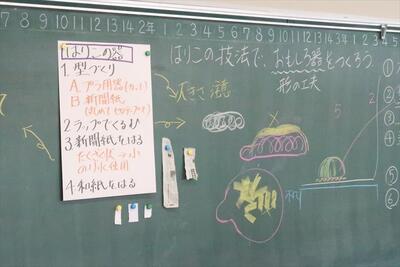 7 8 9 10 11 12 13 14 2年 1 2 3 4 5 6 7 8 9 10 11 12 13 1 2 3 4 5
はりこの器
1.型づくり
A.プラ容器(カット)
B 新聞紙
(まるめてセロテープ)
2ラップでくるむ
3.新聞紙をはる
たくさん 大→小
のり水使用
4.和紙をはる
はりこの技法で、おもしろ器をつくろう
形の工夫
大きさ
×
机
5
2
①
②
③
④
⑤
⑥